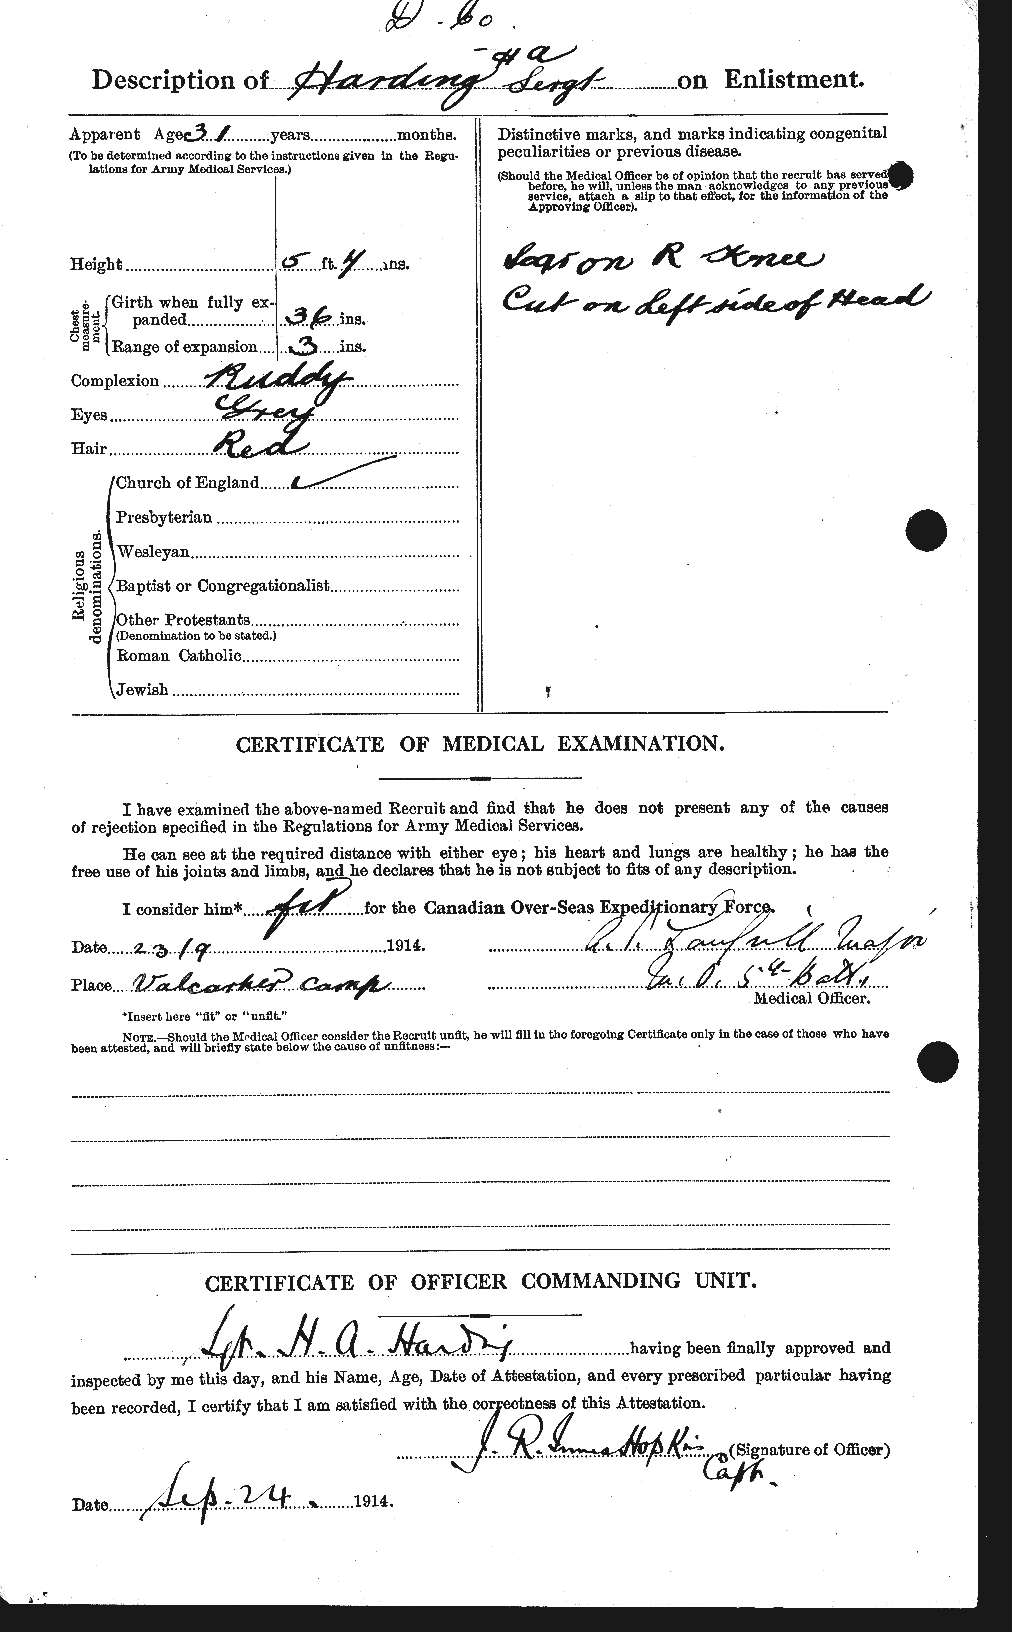 D. Co.
Description of Harding H A Sergt on Enlistment.
Apparent Age 31 years months.
(To be determined according to the instructions given in the Regu-
lations for Army Medical Services.)
Height 5 ft. 4 ins.
Chest measure-ment.
Girth when fully ex-
panded 36 ins.
Range of expansion 3 ins.
Complexion Ruddy
Eyes Grey
Hair Red
Religious denominations.
Church of England
Presbyterian
Wesleyan
Baptist or Congregationalist
Other Protestants
(Denomination to be stated.)
Roman Catholic
Jewish
Distinctive marks, and marks indicating congenital
peculiarities or previous disease.
(Should the Medical Officer be of opinion that the recruit has served
before, he will, unless the man acknowledges to any previous
service, attach a slip to that effect, for the information of the
Approving Officer).
on R Knee
Cut on Left side of Head
CERTIFICATE OF MEDICAL EXAMINATION.
I have examined the above-named Recruit and find that he does not present any of the causes
of rejection specified in the Regulations for Army Medical Services.
He can see at the required distance with either eye; his heart and lungs are healthy; he has the
free use of his joints and limbs, and he declares that he is not subject to fits of any description.
I consider him* fit for the Canadian Over-Seas Expeditionary Force.
Date 23/9 1914. Major
Place Valcartier Camp M.O. 5th Batt.
Medical Officer.
*Insert here "fit" or "unfit."
NOTE.—Should the Medical Officer consider the Recruit unfit, he will fill in the foregoing Certificate only in the case of those who have
been attested, and will briefly state below the cause of unfitness:—
CERTIFICATE OF OFFICER COMMANDING UNIT.
Sgt. H. A. Harding having been finally approved and
inspected by me this day, and his Name, Age, Date of Attestation, and every prescribed particular having
been recorded, I certify that I am satisfied with the correctness of this Attestation.
J. R. Innes Hopkins (Signature of Officer)
Capt.
Date Sep. 24. 1914.